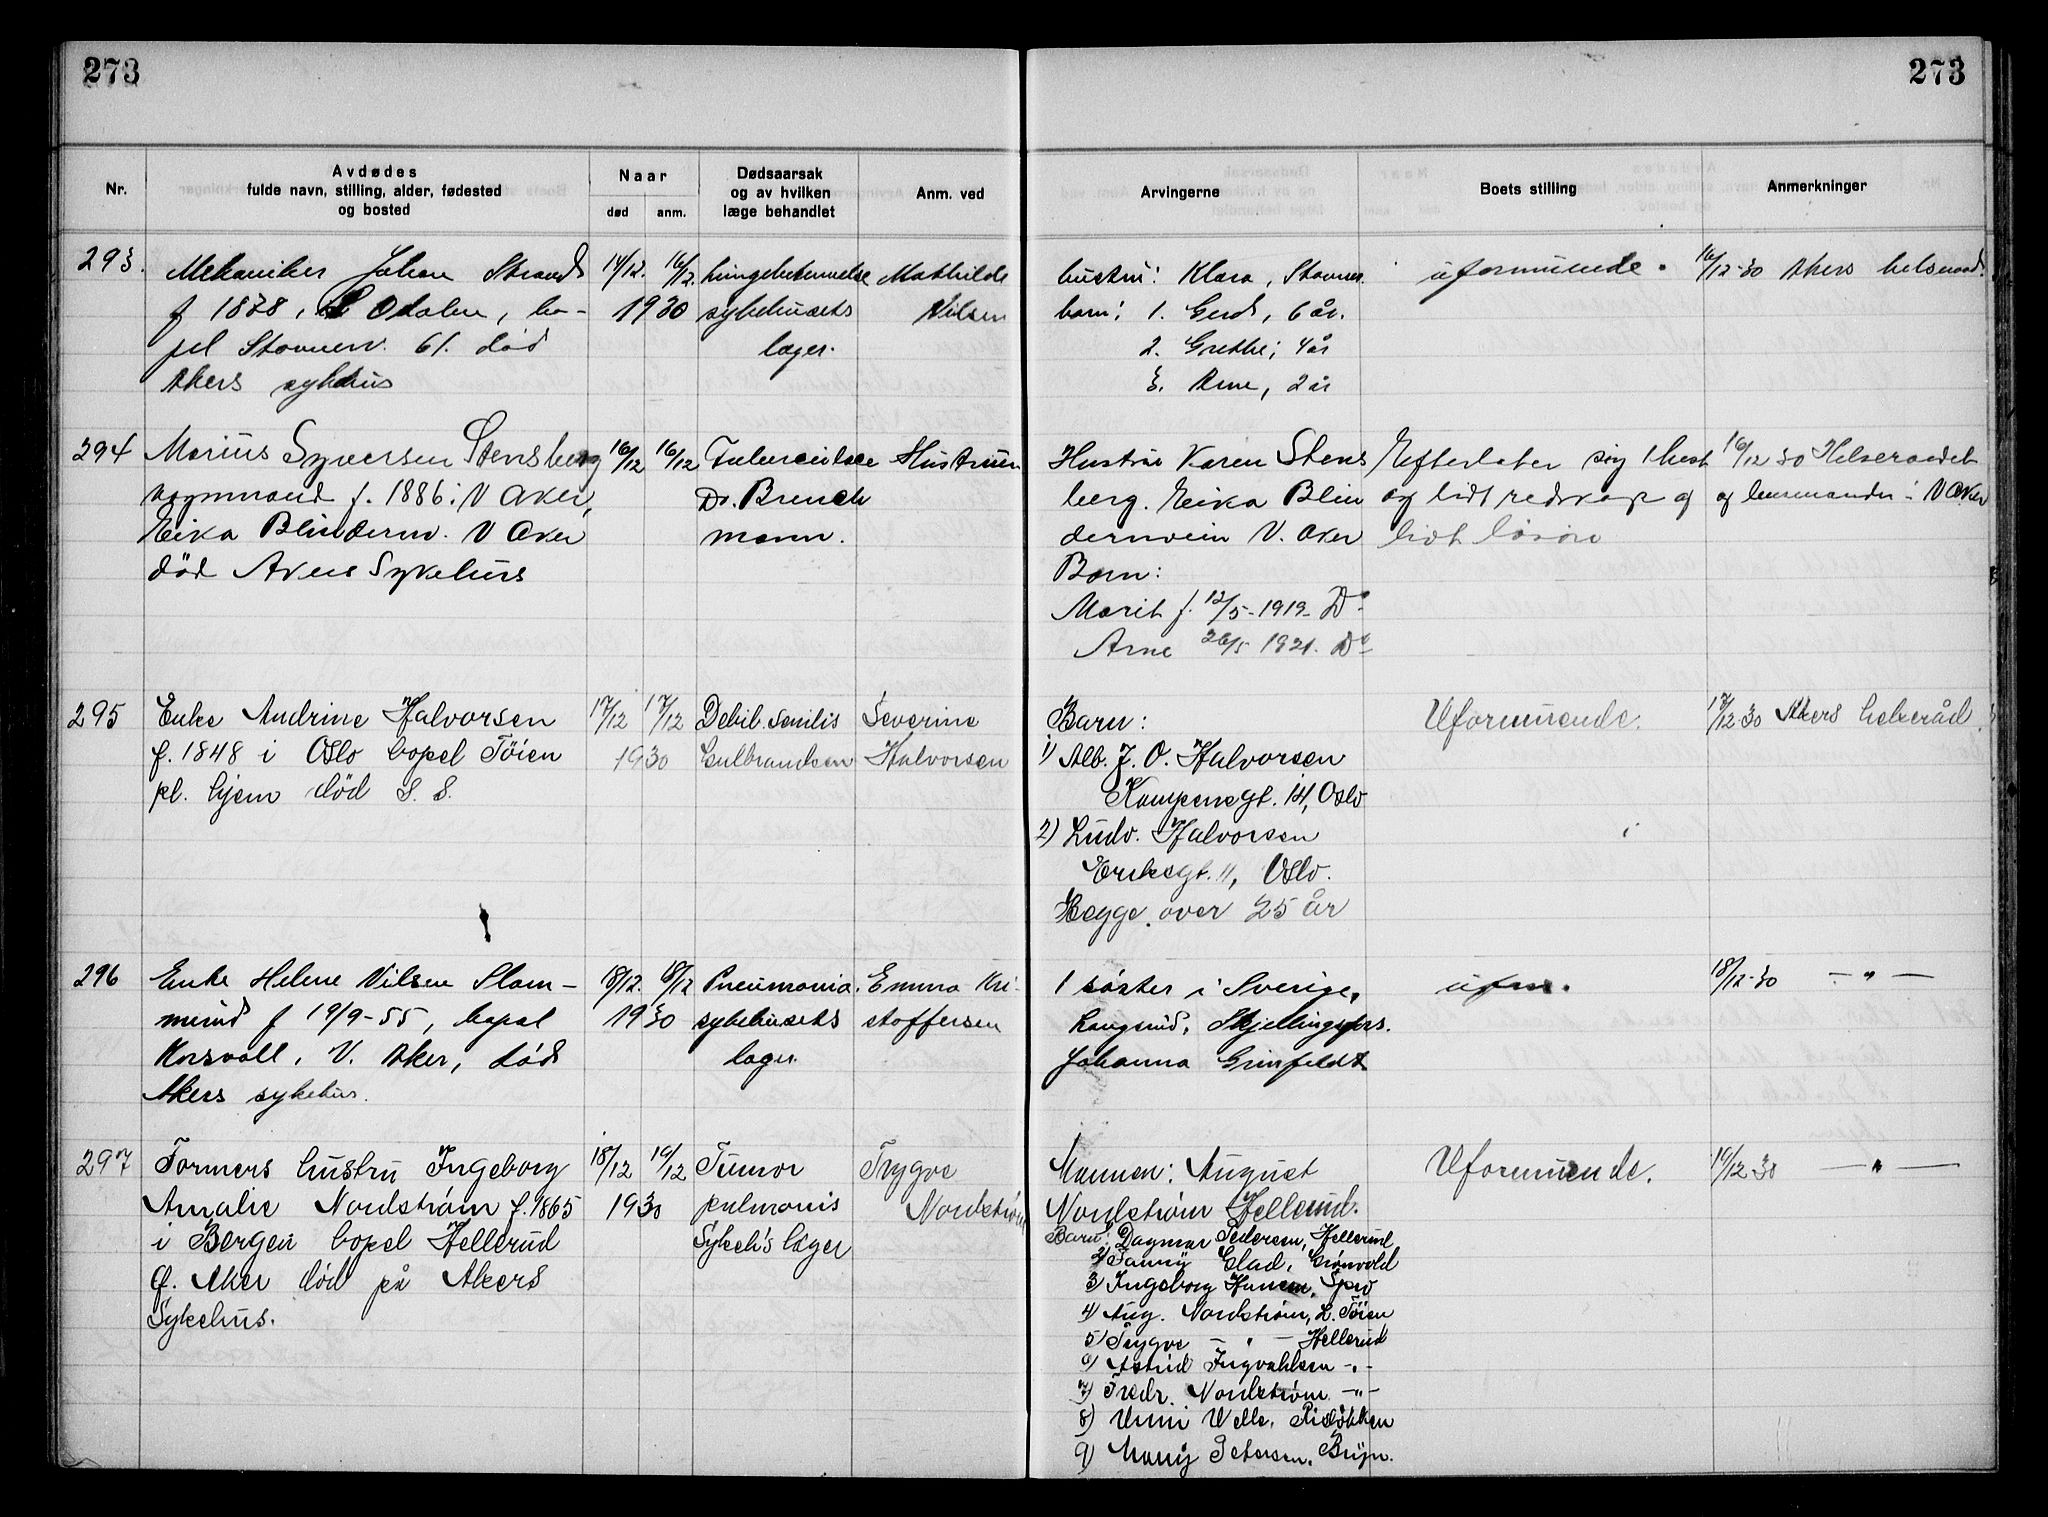 273
273
Nr.
Avdødes
fulde navn, stilling, alder, fødested
og bosted
Naar
død
anm.
Dødsaarsak
og av hvilken
læge behandlet
Anm. ved
Arvingerne
Boets stilling
Anmerkninger
293.
Mekaniker Johan Strand
f 1878, Odalen, bo-
pel Stovnerv. 61. død
Akers sykehus
14/12. 16/12.
1930
lungebetennelse
sykehusets
læger.
Mathilde
Nilsen
hustru: Klara, Stovner.
barn: 1. Gerd, 6 år.
2. Grethe, 4 år
3. Arne, 2 år
uformuende.
16/12-30 Akers helseraad.
294
Marius Syversen Stensberg
vognmand f. 1886 i V Aker,
Eika Blindernv. V Aker
död Akers Sykehus
16/12 16/12
Tuberculose
Dr. Bruch
mann.
Hustruen
Hustru Karen Stens
berg. Eika Blin
dernvein V. Aker
Barn:
Marit f. 12/5-1919- Do
Arne 26/5 1921. Do
Efterlater sig 1 hest
og lidt redskap og
lidt løsøre
16/12 30 Helseraadet
og lensmanden i V Aker
295
Enke Andrine Halvorsen
f. 1848 i Oslo bopel Töien
pl. hjem död S. S.
17/12 17/12
1930
Debil. senilis
Gulbrandsen
Severine
Halvorsen
Barn:
1) Alb. J. O. Halvorsen
Kampensgt. 14, Oslo
2) Ludv. Halvorsen
Eriksgt. 11, Oslo.
Begge over 25 år
Uformuende.
17/12-30 Akers helseråd
296
Enke Helene Nilsen Slom-
merud f 19/9-55, bopel
Korsvoll, V. Aker, död
Akers sykehus.
18/12. 18/12
1930
Pneumonia.
sykehusets
læger.
Emma Kri-
stoffersen
1 söster i Sverige,
Langerud, Skjellingsfors.
Johanna Grinfeldt
ufm.
18/12-30 — " —
297
Formers hustru Ingeborg
Amalie Nordström f. 1865
i Bergen bopel Hellerud
Ø. Aker död på Akers
Sykehus.
18/12 19/12
1930
Tumor
pulmonis
Sykeh's læger
Trygve
Nordström
Mannen: August
Nordström Hellerud.
Barn: 1) Dagmar Pedersen, Hellerud
2) Fanny Glad, Grönvold
3) Ingeborg Hansen, Spro
4) Aug. Nordström, L. Töien
5) Trygve — " — Hellerud
6) Astrid Ingvaldsen -"-
7) Fredr. Nordström -"-
8) Unni Welle, Risløkken
9) Mary Petersen, Bryn.
Uformuende.
19/12-30 — " —